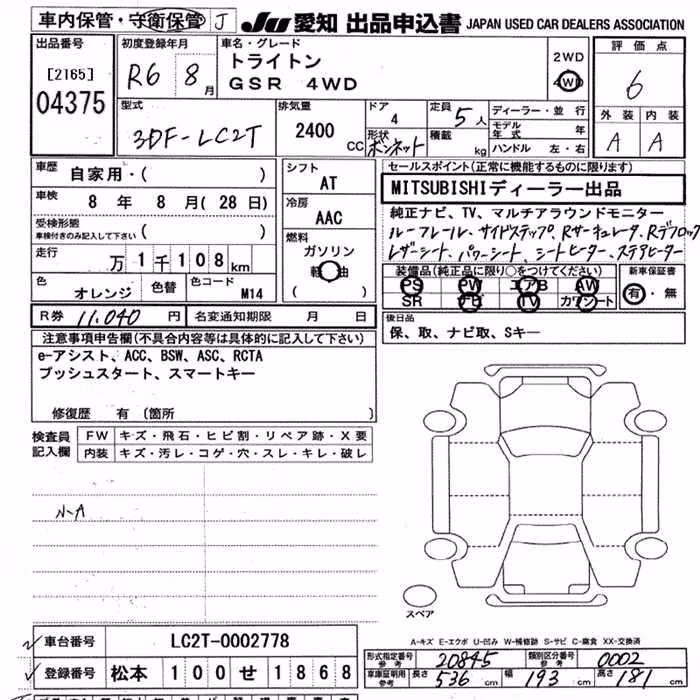 車内保管・守衛保管 J
JU 愛知 出品申込書 JAPAN USED CAR DEALERS ASSOCIATION
出品番号
[2165]
04375
初度登録年月
R6 8月
車名・グレード
トライトン
GSR 4WD
2WD
4WD
評価点
6
外装 内装
A A
型式
3DF-LC2T
排気量
2400 CC
ドア
4
定員
5人
形状
ボンネット
積載
kg
ディーラー・並行
モデル年式 年
ハンドル 左・右
車歴
自家用・( )
車検
8年 8月(28日)
受検形態
車検付きのみ記入して下さい ( )
走行
万1千108km
色
オレンジ
色替
色コード
M14
シフト
AT
冷房
AAC
燃料
ガソリン
軽油
( )
セールスポイント(正常に機能するものに限ります)
MITSUBISHIディーラー出品
純正ナビ、TV、マルチアラウンドモニター
ルーフレール、サイドステップ、Rサーキュレータ、Rデフロック
レザーシート、パワーシート、シートヒーター、ステアヒーター
装備品(純正品に限り○をつけてください)
PS PW エアB AW
SR ナビ TV カワシート
新車保証書
有・無
R券 11,040円
名変通知期限 月 日
後日品
保、取、ナビ取、Sキー
注意事項申告欄(不具合内容等は具体的に記入して下さい)
e-アシスト、ACC、BSW、ASC、RCTA
プッシュスタート、スマートキー
修復歴 有(箇所 )
検査員記入欄
FW キズ・飛石・ヒビ割・リペア跡・X要
内装 キズ・汚レ・コゲ・穴・スレ・キレ・破レ
N-A
スペア
A-キズ E-エクボ U-凹み W-補修跡 S-サビ C-腐食 XX-交換済
車台番号 LC2T-0002778
登録番号 松本 100 せ 1868
形式指定番号 参考 20845
類別区分番号 参考 0002
車庫証明用 参考 長さ 536cm 幅 193cm 高さ 181cm